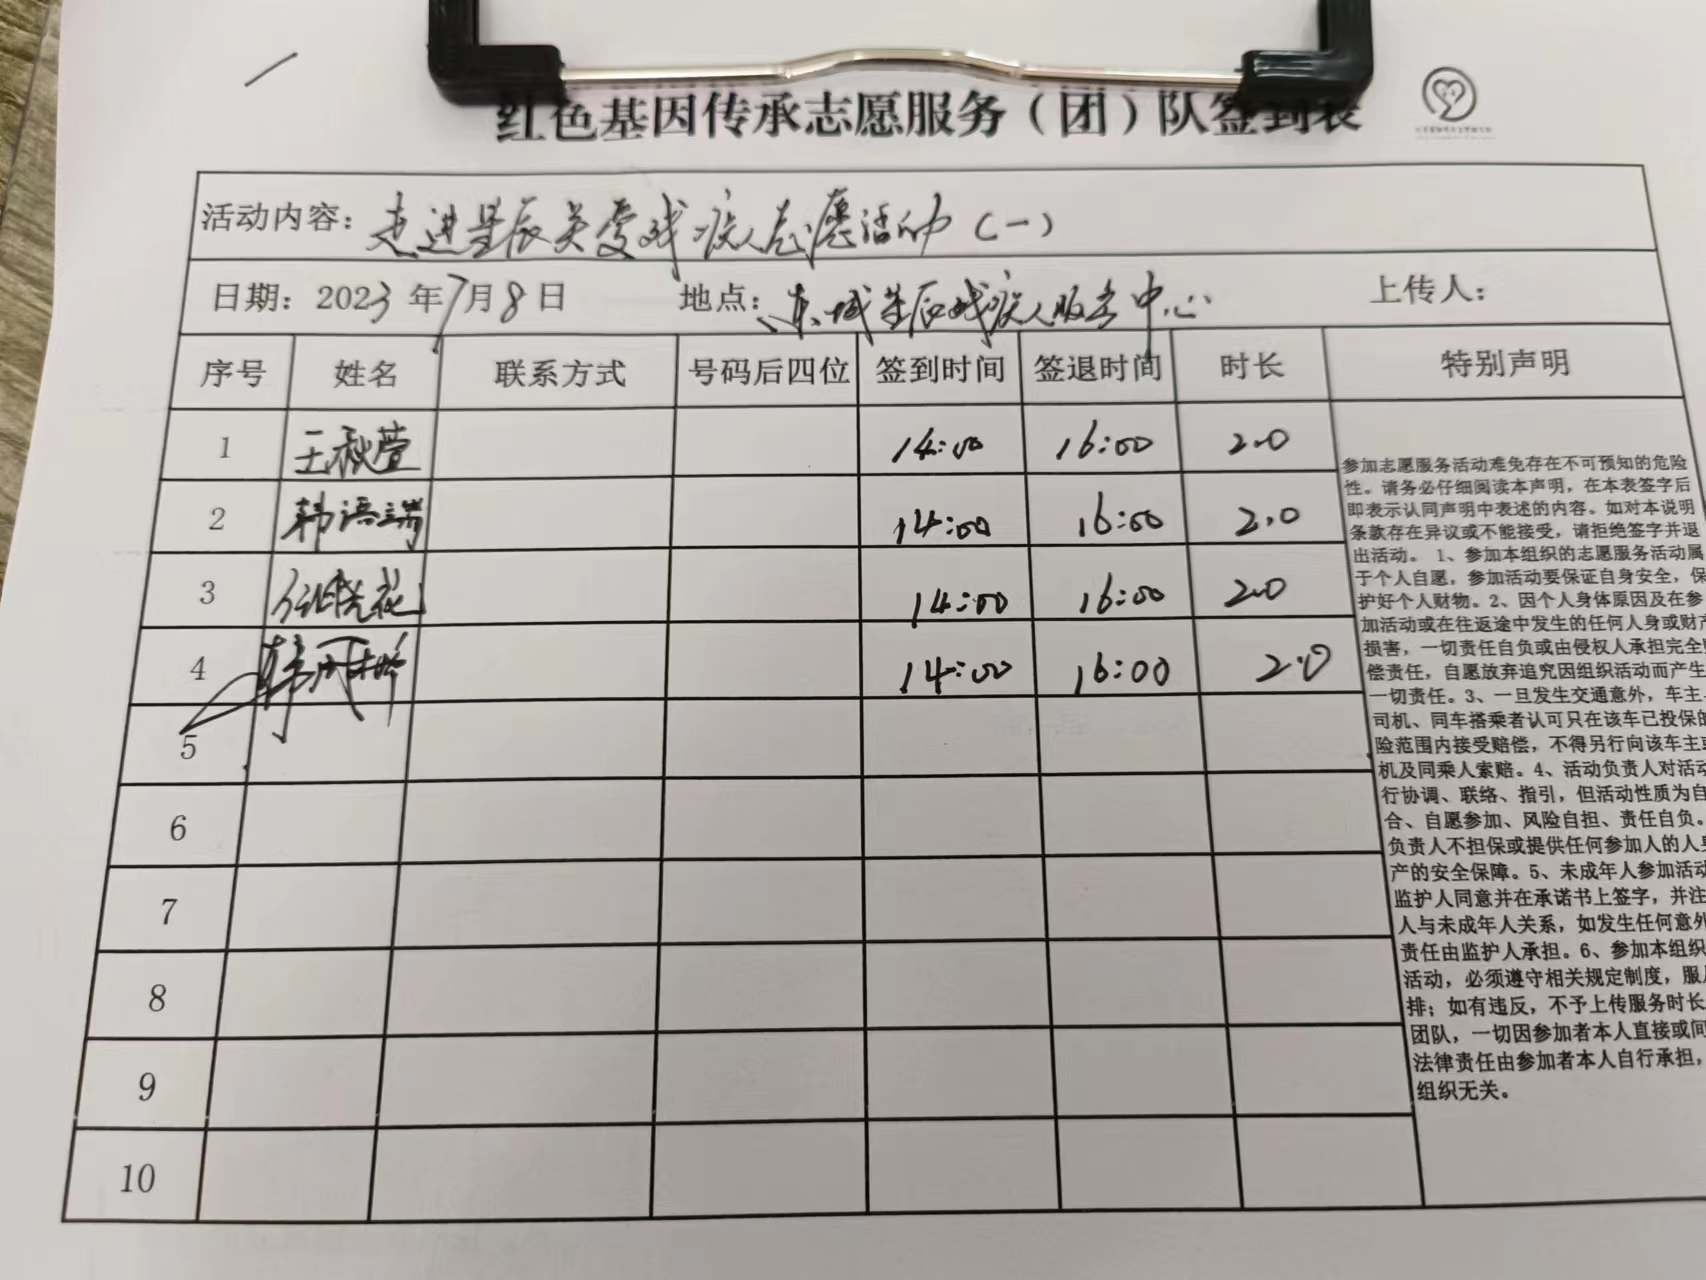 红色基因传承志愿服务（团）队签到表
活动内容：走进星辰关爱残疾人志愿活动（一）
日期：2023年7月8日 地点：东城星辰残疾人服务中心 上传人：
序号 姓名 联系方式 号码后四位 签到时间 签退时间 时长 特别声明
1 王秋萱 14:00 16:00 2.0
2 韩语端 14:00 16:00 2.0
3 14:00 16:00 2.0
4 14:00 16:00 2.0
5
6
7
8
9
10
参加志愿服务活动难免存在不可预知的危险
性。请务必仔细阅读本声明，在本表签字后
即表示认同声明中表述的内容。如对本说明
条款存在异议或不能接受，请拒绝签字并退
出活动。1、参加本组织的志愿服务活动属
于个人自愿，参加活动要保证自身安全，保
护好个人财物。2、因个人身体原因及在参
加活动或在往返途中发生的任何人身或财产
损害，一切责任自负或由侵权人承担完全赔
偿责任，自愿放弃追究因组织活动而产生
一切责任。3、一旦发生交通意外，车主、
司机、同车搭乘者认可只在该车已投保的
险范围内接受赔偿，不得另行向该车主或
机及同乘人索赔。4、活动负责人对活动
行协调、联络、指引，但活动性质为自
合、自愿参加、风险自担、责任自负。
负责人不担保或提供任何参加人的人身
产的安全保障。5、未成年人参加活动
监护人同意并在承诺书上签字，并注
人与未成年人关系，如发生任何意外
责任由监护人承担。6、参加本组织
活动，必须遵守相关规定制度，服从
排；如有违反，不予上传服务时长
团队，一切因参加者本人直接或间
法律责任由参加者本人自行承担，
组织无关。